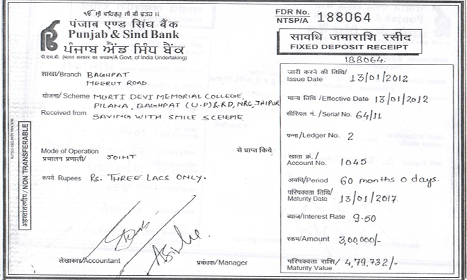 पंजाब एण्ड सिंध बैंक
Punjab & Sind Bank
ਪੰਜਾਬ ਐਂਡ ਸਿੰਧ ਬੈਂਕ
(A Govt. of India Undertaking)
FDR No.
NTSP/A 188064
सावधि जमाराशि रसीद
FIXED DEPOSIT RECEIPT
188064
शाखा/Branch BAGHPAT
MEERUT ROAD
योजना/Scheme MURTI DEVI MEMORIAL COLLEGE,
PILANA, BAGHPAT (U.P) & RD, NRC, JAIPUR
Received from SAVING WITH SMILE SCHEME
से प्राप्त किये
Mode of Operation
प्रचालन प्रणाली/ JOINT
रूपये Rupees Rs. THREE LACS ONLY.
लेखाकार/Accountant प्रबंधक/Manager
अहस्तांतरणीय/NON TRANSFERABLE
जारी करने की तिथि/
Issue Date 13/01/2012
मान्य तिथि/Effective Date 13/01/2012
सीरियल नं./Serial No. 64/11
पन्ना/Ledger No. 2
खाता क्र./
Account No. 1045
अवधि/Period 60 months 0 days.
परिपक्वता तिथि/
Maturity Date 13/01/2017
ब्याज/Interest Rate 9.50
रकम/Amount 3,00,000/-
परिपक्वता राशि/
Maturity Value 4,79,732/-